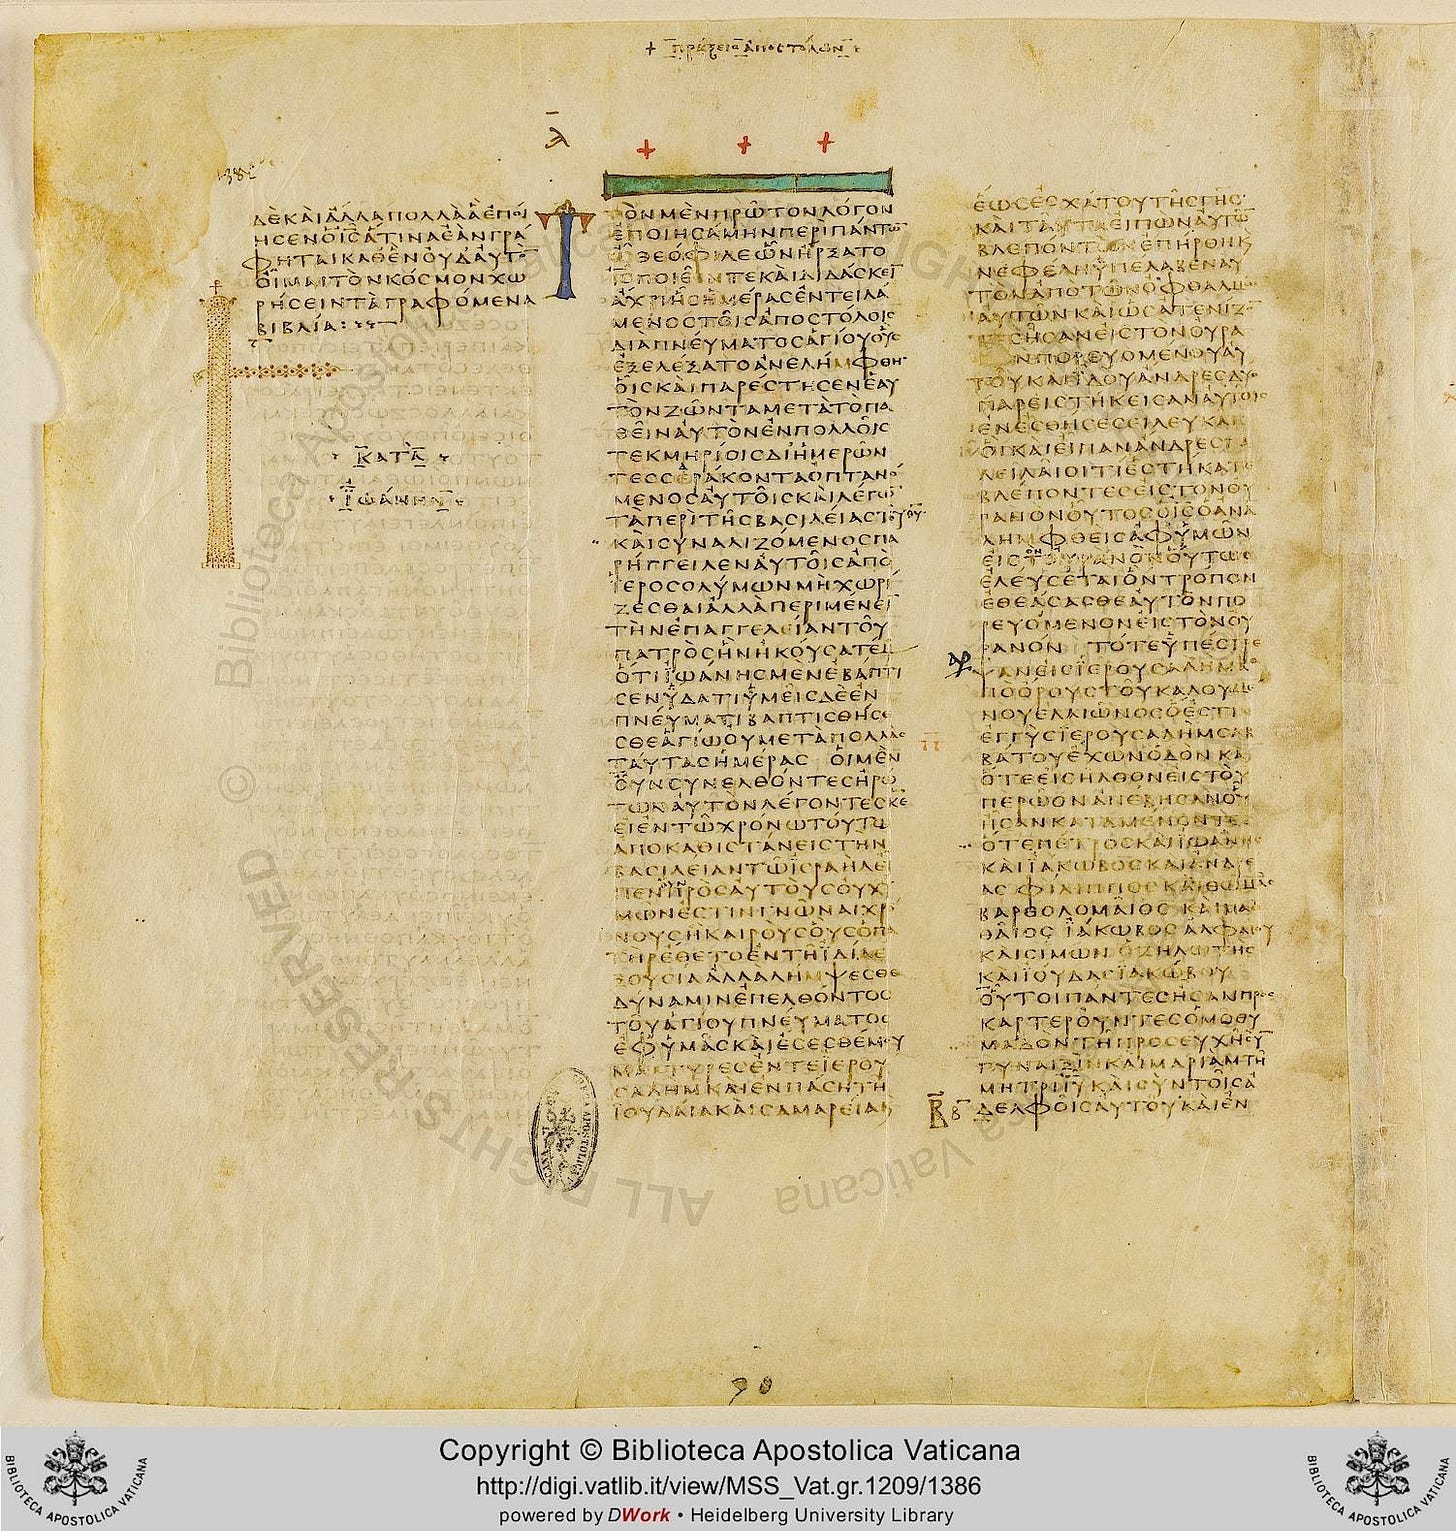 + ΠΡΑΞΕΙϹ ΑΠΟϹΤΟΛΩΝ
ΔΕΚΑΙΑΛΛΑΠΟΛΛΑΑΕΠΟΙ
ΗϹΕΝΟΙϹΑΤΙΝΑΕΑΝΓΡΑ
ΦΗΤΑΙΚΑΘΕΝΟΥΔΑΥΤΟ
ΟΙΜΑΙΤΟΝΚΟϹΜΟΝΧΩ
ΡΗϹΕΙΝΤΑΓΡΑΦΟΜΕΝΑ
ΒΙΒΛΙΑ:
ΚΑΤΑ
ΙΩΑΝΗΝ
ΤΟΝΜΕΝΠΡΩΤΟΝΛΟΓΟΝ
ΕΠΟΙΗϹΑΜΗΝΠΕΡΙΠΑΝΤΩ
ΩΘΕΟΦΙΛΕΩΝΗΡΞΑΤΟ
ΙϹΠΟΙΕΙΝΤΕΚΑΙΔΙΔΑϹΚΕΙ
ΑΧΡΙΗϹΗΜΕΡΑϹΕΝΤΕΙΛΑ
ΜΕΝΟϹΤΟΙϹΑΠΟϹΤΟΛΟΙϹ
ΔΙΑΠΝΕΥΜΑΤΟϹΑΓΙΟΥΟΥϹ
ΕΞΕΛΕΞΑΤΟΑΝΕΛΗΜΦΘΗ
ΟΙϹΚΑΙΠΑΡΕϹΤΗϹΕΝΕΑΥ
ΤΟΝΖΩΝΤΑΜΕΤΑΤΟΠΑ
ΘΕΙΝΑΥΤΟΝΕΝΠΟΛΛΟΙϹ
ΤΕΚΜΗΡΙΟΙϹΔΙΗΜΕΡΩΝ
ΤΕϹϹΕΡΑΚΟΝΤΑΟΠΤΑΝΟ
ΜΕΝΟϹΑΥΤΟΙϹΚΑΙΛΕΓΩ
ΤΑΠΕΡΙΤΗϹΒΑϹΙΛΕΙΑϹΤΟΥΘΥ
ΚΑΙϹΥΝΑΛΙΖΟΜΕΝΟϹΠΑ
ΡΗΓΓΕΙΛΕΝΑΥΤΟΙϹΑΠΟ
ΙΕΡΟϹΟΛΥΜΩΝΜΗΧΩΡΙ
ΖΕϹΘΑΙΑΛΛΑΠΕΡΙΜΕΝΕΙ
ΤΗΝΕΠΑΓΓΕΛΕΙΑΝΤΟΥ
ΠΑΤΡΟϹΗΝΗΚΟΥϹΑΤΕΜ
ΟΤΙΙΩΑΝΗϹΜΕΝΕΒΑΠΤΙ
ϹΕΝΥΔΑΤΙΥΜΕΙϹΔΕΕΝ
ΠΝΕΥΜΑΤΙΒΑΠΤΙϹΘΗϹΕ
ϹΘΕΑΓΙΩΟΥΜΕΤΑΠΟΛΛΑϹ
ΤΑΥΤΑϹΗΜΕΡΑϹ ΟΙΜΕΝ
ΟΥΝϹΥΝΕΛΘΟΝΤΕϹΗΡΩ
ΤΩΝΑΥΤΟΝΛΕΓΟΝΤΕϹΚΕ
ΕΙΕΝΤΩΧΡΟΝΩΤΟΥΤΩ
ΑΠΟΚΑΘΙϹΤΑΝΕΙϹΤΗΝ
ΒΑϹΙΛΕΙΑΝΤΩΙϹΡΑΗΛΕΙ
ΠΕΝΠΡΟϹΑΥΤΟΥϹΟΥΧΥ
ΜΩΝΕϹΤΙΝΓΝΩΝΑΙΧΡΟ
ΝΟΥϹΗΚΑΙΡΟΥϹΟΥϹΟΠΑ
ΤΗΡΕΘΕΤΟΕΝΤΗΙΔΙΑΕ
ΞΟΥϹΙΑΑΛΛΑΛΗΜΨΕϹΘΕ
ΔΥΝΑΜΙΝΕΠΕΛΘΟΝΤΟϹ
ΤΟΥΑΓΙΟΥΠΝΕΥΜΑΤΟϹ
ΕΦΥΜΑϹΚΑΙΕϹΕϹΘΕΜΟΥ
ΜΑΡΤΥΡΕϹΕΝΤΕΙΕΡΟΥ
ϹΑΛΗΜΚΑΙΕΝΠΑϹΗΤΗ
ΙΟΥΔΑΙΑΚΑΙϹΑΜΑΡΕΙΑΚ
ΕΩϹΕϹΧΑΤΟΥΤΗϹΓΗϹ
ΚΑΙΤΑΥΤΑΕΙΠΩΝΑΥΤΩ
ΒΛΕΠΟΝΤΩΝΕΠΗΡΘΗΚ
ΝΕΦΕΛΗΥΠΕΛΑΒΕΝΑΥ
ΤΟΝΑΠΟΤΩΝΟΦΘΑΛΜΩ
ΑΥΤΩΝΚΑΙΩϹΑΤΕΝΙΖ
ΤΕϹΗϹΑΝΕΙϹΤΟΝΟΥΡΑ
ΝΟΝΠΟΡΕΥΟΜΕΝΟΥΑΥ
ΤΟΥΚΑΙΙΔΟΥΑΝΔΡΕϹΔΥΟ
ΠΑΡΕΙϹΤΗΚΕΙϹΑΝΑΥΤΟΙϹ
ΕΝΕϹΘΗϹΕϹΙΛΕΥΚΑΙϹ
ΟΙΚΑΙΕΙΠΑΝΑΝΔΡΕϹΓΑ
ΛΕΙΛΑΙΟΙΤΙΕϹΤΗΚΑΤΕ
ΒΛΕΠΟΝΤΕϹΕΙϹΤΟΝΟΥ
ΡΑΝΟΝΟΥΤΟϹΟΙϹΟΑΝΑ
ΛΗΜΦΘΕΙϹΑΦΥΜΩΝ
ΕΙϹΤΟΝΟΥΡΑΝΟΝΟΥΤΩϹ
ΕΛΕΥϹΕΤΑΙΟΝΤΡΟΠΟΝ
ΕΘΕΑϹΑϹΘΕΑΥΤΟΝΠΟ
ΡΕΥΟΜΕΝΟΝΕΙϹΤΟΝΟΥ
ΡΑΝΟΝ ΤΟΤΕΥΠΕϹΤΡΕ
ΨΑΝΕΙϹΙΕΡΟΥϹΑΛΗΜΑ
ΠΟΟΡΟΥϹΤΟΥΚΑΛΟΥΜΕ
ΝΟΥΕΛΑΙΩΝΟϹΟΕϹΤΙ
ΕΓΓΥϹΙΕΡΟΥϹΑΛΗΜϹΑΒ
ΒΑΤΟΥΕΧΩΝΟΔΟΝ ΚΑΙ
ΟΤΕΕΙϹΗΛΘΟΝΕΙϹΤΟΥ
ΠΕΡΩΟΝΑΝΕΒΗϹΑΝΟΥ
ΗϹΑΝΚΑΤΑΜΕΝΟΝΤΕϹ
ΟΤΕΠΕΤΡΟϹΚΑΙΙΩΑΝΗϹ
ΚΑΙΙΑΚΩΒΟϹΚΑΙΑΝΔΡΕ
ΑϹ ΦΙΛΙΠΠΟϹ ΚΑΙΘΩΜΑϹ
ΒΑΡΘΟΛΟΜΑΙΟϹ ΚΑΙΜΑΘ
ΘΑΙΟϹ ΙΑΚΩΒΟϹ ΑΛΦΑΙΟΥ
ΚΑΙϹΙΜΩΝ ΟΖΗΛΩΤΗϹ
ΚΑΙΙΟΥΔΑϹΙΑΚΩΒΟΥ
ΟΥΤΟΙΠΑΝΤΕϹΗϹΑΝΠΡΟϹ
ΚΑΡΤΕΡΟΥΝΤΕϹΟΜΟΘΥ
ΜΑΔΟΝΤΗΠΡΟϹΕΥΧΗϹΥ
ΓΥΝΑΙΞΙΝΚΑΙΜΑΡΙΑΜΤΗ
ΜΗΤΡΙΙΥΚΑΙϹΥΝΤΟΙϹΑ
ΔΕΛΦΟΙϹΑΥΤΟΥ ΚΑΙΕΝ
Copyright © Biblioteca Apostolica Vaticana
http://digi.vatlib.it/view/MSS_Vat.gr.1209/1386
powered by DWork • Heidelberg University Library
BIBLIOTECA APOSTOLICA VATICANA
BIBLIOTECA APOSTOLICA VATICANA